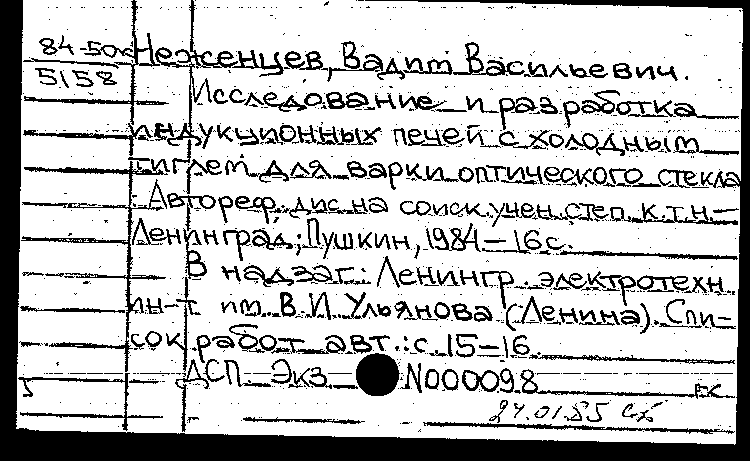 84-50к Неженцев, Вадим Васильевич.
5158
Исследование и разработка
индукционных печей с холодным
тиглем для варки оптического стекла
: Автореф. дис. на соиск. учен. степ. к.т.н.—
Ленинград; Пушкин, 1984—16с.
В надзаг.: Ленингр. электротехн
ин-т им. В.И. Ульянова (Ленина). Спи-
сок работ авт.: с. 15—16.
ДСП. Экз N000098
27.01.85